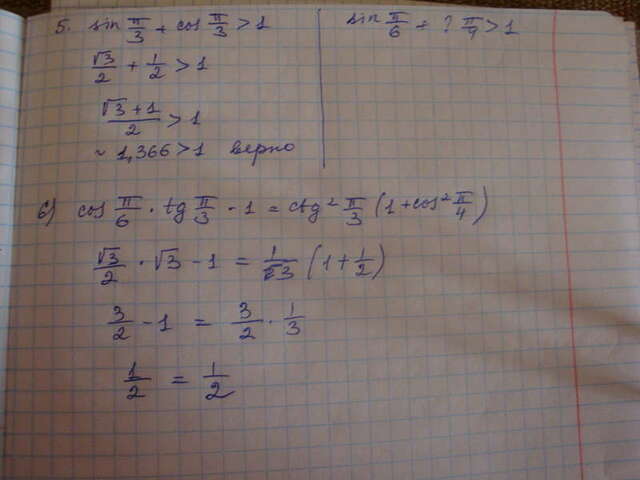 5. sin π/3 + cos π/3 > 1
√3/2 + 1/2 > 1
(√3 + 1)/2 > 1
~ 1,366 > 1 верно
sin π/6 + ? π/4 > 1
6) cos π/6 · tg π/3 - 1 = ctg² π/3 (1 + cos² π/4)
√3/2 · √3 - 1 = 1/3 (1 + 1/2)
3/2 - 1 = 3/2 · 1/3
1/2 = 1/2